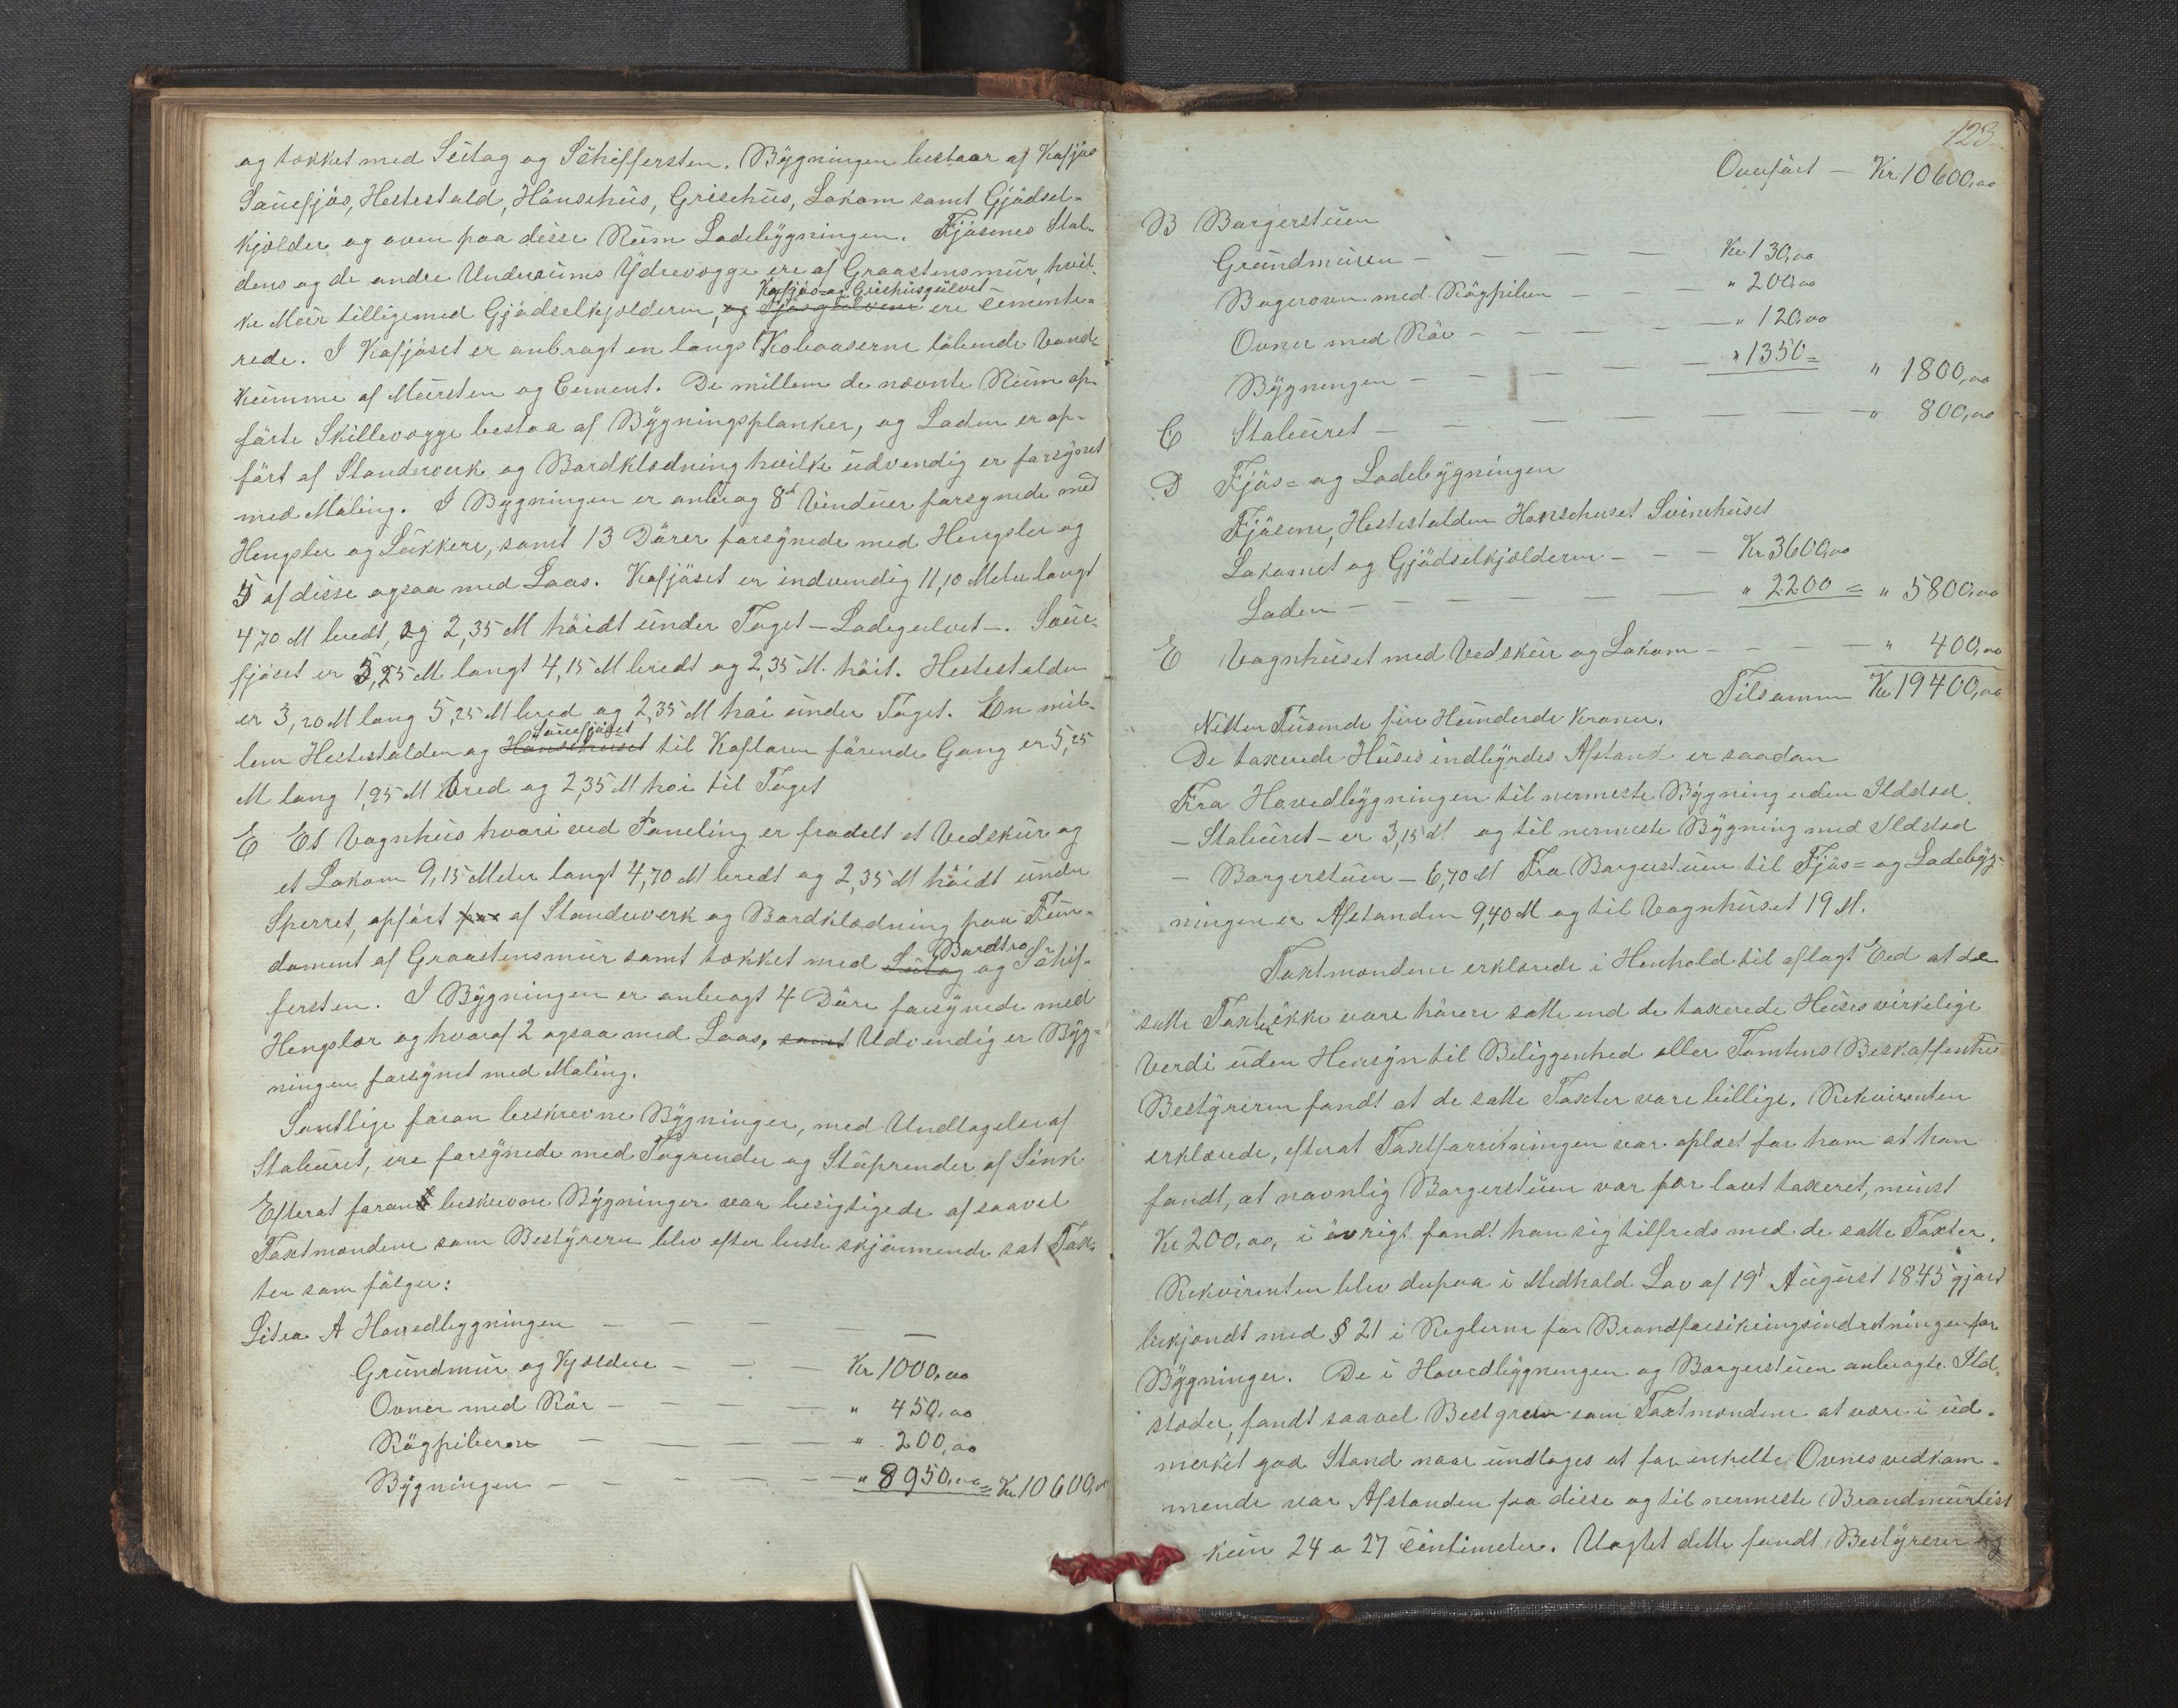 og tækket med Sutag og Schiffersten. Bygningen bestaar af Kofjøs
Sauefjøs, Hestestald, Hønsehus, Grisehus, Lokom samt Gjødsel-
kjælder og oven paa disse Rum Ladebygningen. Fjøsenes Stal-
dens og de andre Underrums Ydrevægge ere af Graastensmur, hvil-
Kofjøs- og Grishusgulvet
ke Mur tilligemed Gjødselkjælderen, og Fjøsgulvene ere cemente-
rede. I Kofjøset er anbragt en langs Kobaaserne løbende Vand-
kumme af Mursten og Cement. De mellem de nævnte Rum op-
førte Skillevægge bestaa af Bygningsplanker, og Laden er op-
ført af Standerverk og Bordklædning hvilke udvendig er forsynet
med Maling. I Bygningen er anbrag 8t Vinduer forsynede med
Hengsler og Lukkere, samt 13 Dører forsynede med Hengsler og
5 af disse ogsaa med Laas. Kofjøset er indvendig 11,10 Meter langt
4,70 M bredt, og 2,35 M høidt under Taget - Ladegulvet -. Saue-
fjøset er 5,25 M langt 4,15 M bredt og 2,35 M. høit. Hestestalden
er 3,20 M lang 5,25 M bred og 2,35 M høi under Taget. En mel-
Sauefjøset
lem Hestestalden og Hønsehuset til Kaflaren førende Gang er 5,25
M lang 1,95 M bred og 2,35 M høi til Taget
E Et Vognhus hvori ved Paneling er fradelt et Vedskur og
et Lokom 9,15 Meter langt 4,70 M bredt og 2,35 M høidt under
Sperret, opført paa af Standerverk og Bordklædning paa Fun-
Bordtro
dament af Graastensmur samt tækket med Sutag og Schif-
fersten. I Bygningen er anbragt 4 Døre forsynede med
Hengsler og hvoraf 2 ogsaa med Laas, samt Udvendig er Byg-
ningen forsynet med Maling.
Samtlige foran beskrevne Bygninger, med Undtagelse af
Staburet, ere forsynede med Tagrender og Stuprender af Sink
Efterat foran beskrevne Bygninger var besigtigede af saavel
Taxtmændene som Bestyreren blev efter beste skjønnende sat Tax-
ter som følger:
Litra A Hovedbygningen — — — — —
Grundmur og Kjælder — — — Kr 1000,00
Ovner med Rør — — — — " 450,00
Røgpiberne — — — — " 200,00
Bygningen — — — — — " 8950,00 = Kr 10600,00
123
Overført — Kr 10600,00
B Borgerstuen
Grundmuren — — — — Kr 130,00
Bagerovn med Røgpiben — — — " 200,00
Ovner med Rør — — — — " 120,00
Bygningen — — — — " 1350 = " 1800,00
C Staburet — — — — — — " 800,00
D Fjøs= og Ladebygningen
Fjøsene, Hestestalden Hønsehuset Svinehuset
Lokomet og Gjødselkjælderen — — — Kr 3600,00
Laden — — — — — " 2200 = " 5800,00
E Vognhuset med Vedskur og Lokom — — — — " 400,00
Tilsammen Kr 19400,00
Nitten Tusinde fire Hunderde Kroner.
De taxerede Huses indbyrdes Afstand er saadan
Fra Hovedbygningen til nermeste Bygning uden Ildsted
- Staburet - er 3,15 M og til nermeste Bygning med Ildsted
- Borgerstuen - 6,70 M Fra Borgerstuen til Fjøs= og Ladebyg-
ningen er Afstanden 9,40 M og til Vognhuset 19 M.
Taxtmændene erklærede i Henhold til aflagt Eed at de
satte Taxter ikke vare høiere satte end de taxerede Huses virkelige
Verdi uden Hensyn til Beliggenhed eller Tomtens Beskaffenhed
Bestyreren fandt at de satte Taxter vare billige. Rekvirenten
erklærede, efterat Taxtforretningen var oplæst for ham at han
fandt, at navnlig Borgerstuen var for lavt taxeret, minst
Kr 200,00, i øvrigt fandt han sig tilfreds med de satte Taxter.
Rekvirenten blev derpaa i Medhold Lov af 19d August 1845 gjort
bekjendt med § 21 i Reglerne for Brandforsikringsindretningen for
Bygninger. De i Hovedbygningen og Borgerstuen anbragte Ild-
steder, fandt saavel Bestyreren som Taxtmændene at være i ud-
merket god Stand naar undtages at for enkelte Ovnes vedkom-
mende var Afstanden fra disse og til nermeste Brandmur
kun 24 a 27 Centimeter. Uagtet dette fandt Bestyreren og